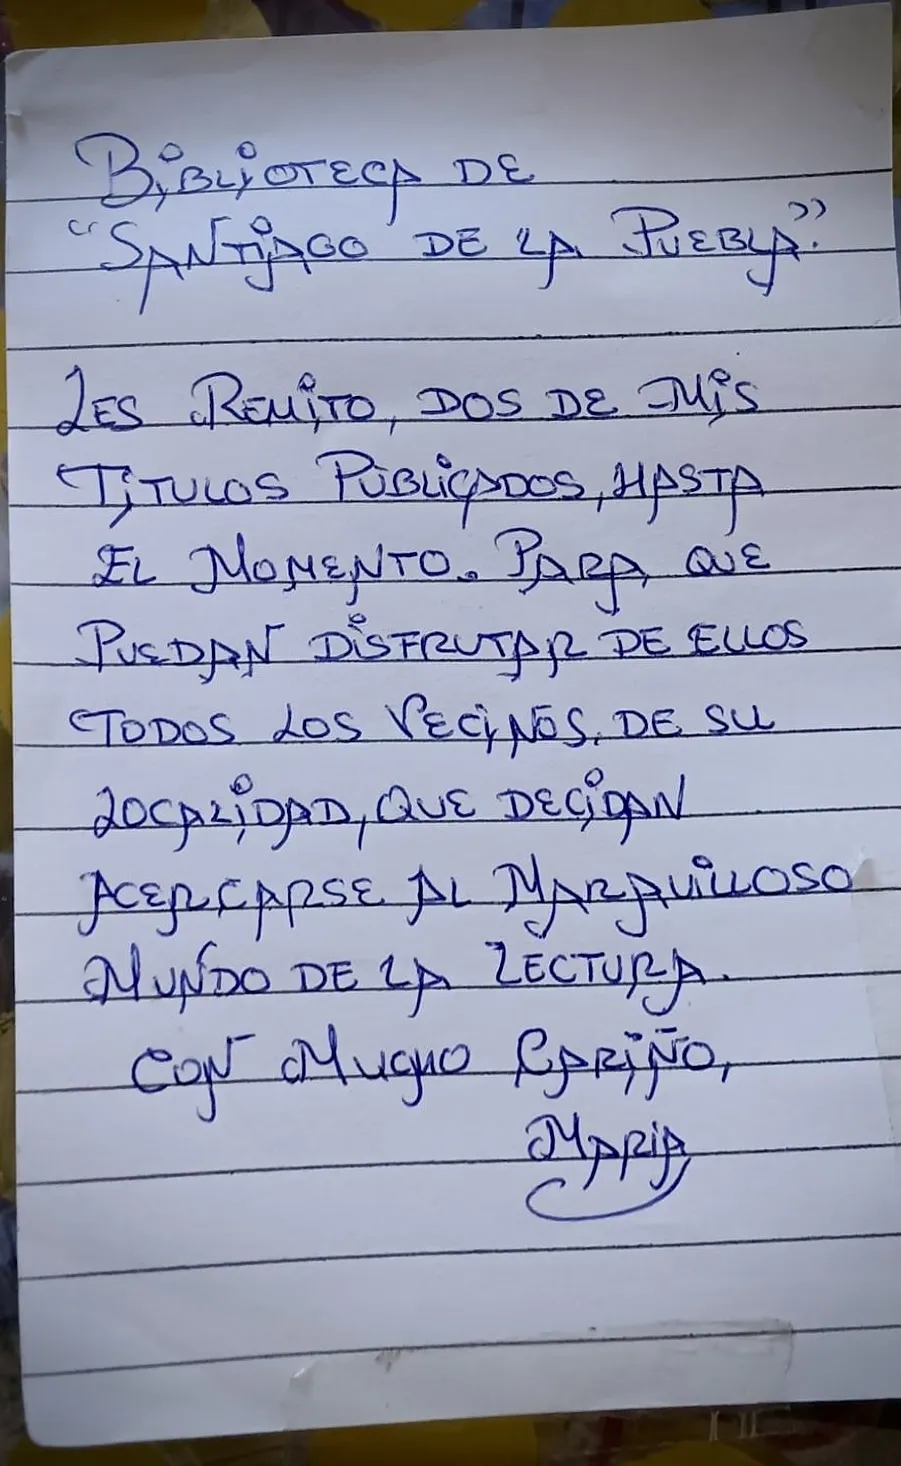 BIBLIOTECA DE
"SANTIAGO DE LA PUEBLA".
LES REMITO, DOS DE MIS
TITULOS PUBLICADOS, HASTA
EL MOMENTO. PARA QUE
PUEDAN DISFRUTAR DE ELLOS
TODOS LOS VECINOS, DE SU
LOCALIDAD, QUE DECIDAN
ACERCARSE AL MARAVILLOSO
MUNDO DE LA LECTURA.
CON MUCHO CARIÑO,
MARIA